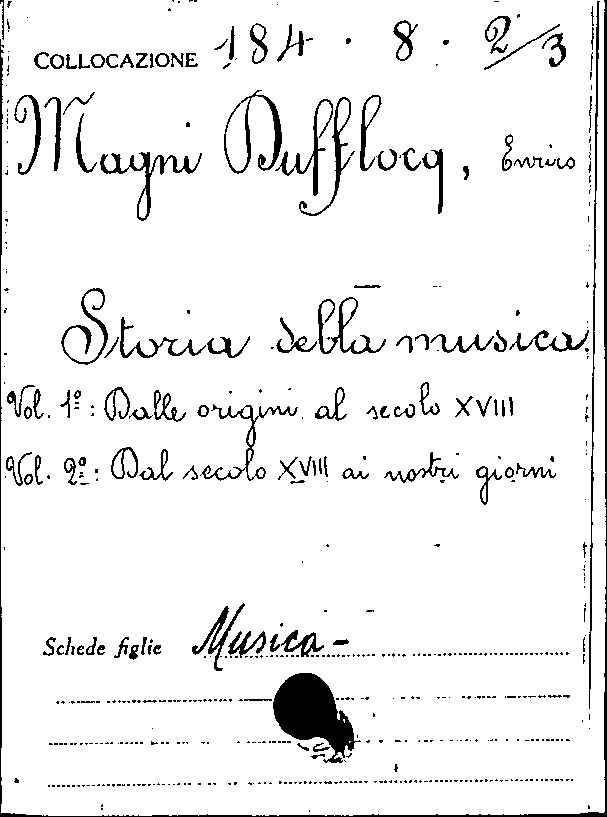 COLLOCAZIONE 184 · 8 · 2/3
Magni Dufflocq, Enrico
Storia della musica
Vol. 1º: Dalle origini al secolo XVIII
Vol. 2º: Dal secolo XVIII ai nostri giorni
Schede figlie Musica -